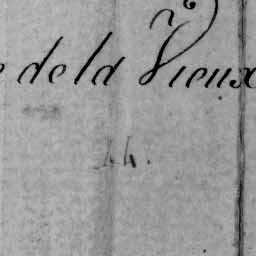 e de la Vieux